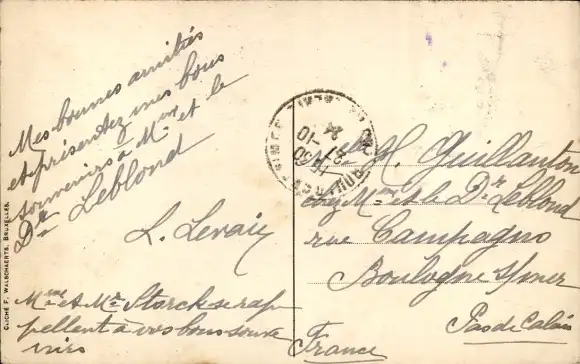 Mes bonnes amitiés
et présentez mes bons
souvenirs à Mme et le
Dr Leblond
L. Levaic
Mme et Mr Storck se rap
pellent à vos bons souve
nirs
CLICHÉ F. WALSCHAERTS, BRUXELLES.
M. Guillanton
chez Mme et le Dr Leblond
rue Campagno
Boulogne s/mer
Pas de Calais
France